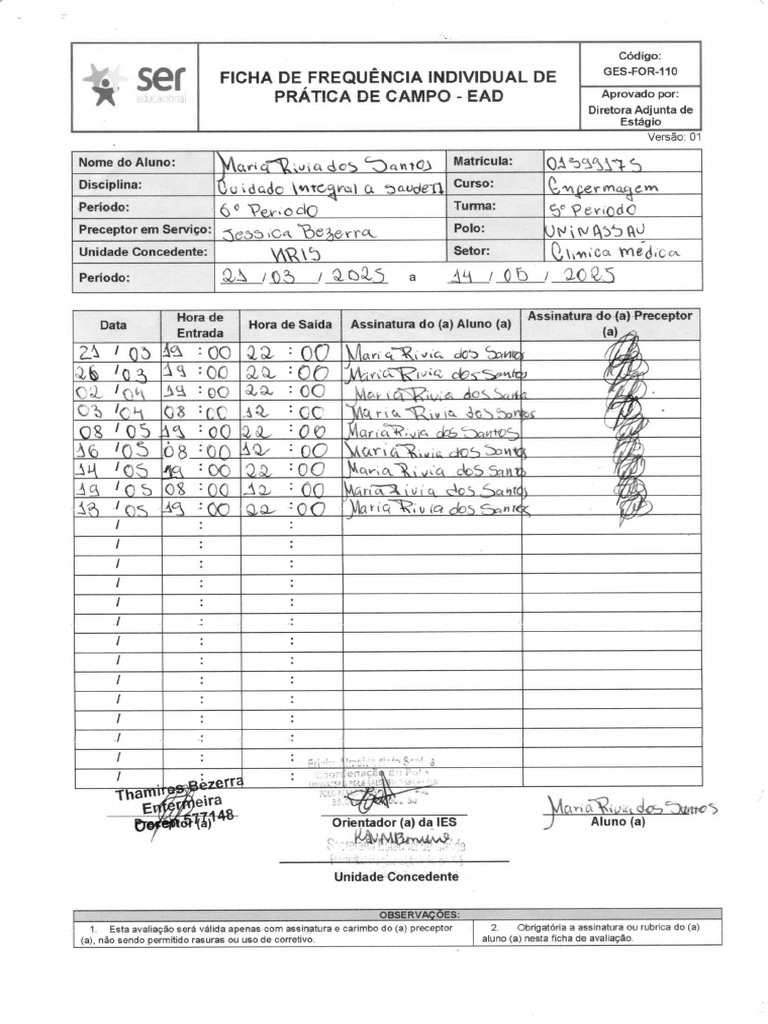 ser educacional
FICHA DE FREQUÊNCIA INDIVIDUAL DE PRÁTICA DE CAMPO - EAD
Código:
GES-FOR-110
Aprovado por:
Diretora Adjunta de Estágio
Versão: 01
Nome do Aluno: Maria Rivia dos Santos Matrícula: 01599175
Disciplina: Cuidado Integral a saude II Curso: Enfermagem
Período: 6º Periodo Turma: 5º Periodo
Preceptor em Serviço: Jessica Bezerra Polo: UNINASSAU
Unidade Concedente: Setor: Clinica médica
Período: 21 / 03 / 2025 a 14 / 05 / 2025
Data Hora de Entrada Hora de Saída Assinatura do (a) Aluno (a) Assinatura do (a) Preceptor (a)
21 / 03 19 : 00 22 : 00 Maria Rivia dos Santos
26 / 03 19 : 00 22 : 00 Maria Rivia dos Santos
02 / 04 19 : 00 22 : 00 Maria Rivia dos Santa
03 / 04 08 : 00 12 : 00 Maria Rivia dos Santos
08 / 05 19 : 00 22 : 00 Maria Rivia dos Santos
16 / 05 08 : 00 12 : 00 Maria Rivia dos Santos
14 / 05 19 : 00 22 : 00 Maria Rivia dos Santos
19 / 05 08 : 00 12 : 00 Maria Rivia dos Santos
13 / 05 19 : 00 22 : 00 Maria Rivia dos Santos
/ : :
/ : :
/ : :
/ : :
/ : :
/ : :
/ : :
/ : :
/ : :
/ : :
/ : :
/ : :
/ : :
/ : :
Thamires Bezerra
Enfermeira
Coren 577148
Preceptor (a)
Coordenação do Polo
Orientador (a) da IES
Maria Rivia dos Santos
Aluno (a)
Unidade Concedente
OBSERVAÇÕES:
1. Esta avaliação será válida apenas com assinatura e carimbo do (a) preceptor (a), não sendo permitido rasuras ou uso de corretivo.
2. Obrigatória a assinatura ou rubrica do (a) aluno (a) nesta ficha de avaliação.